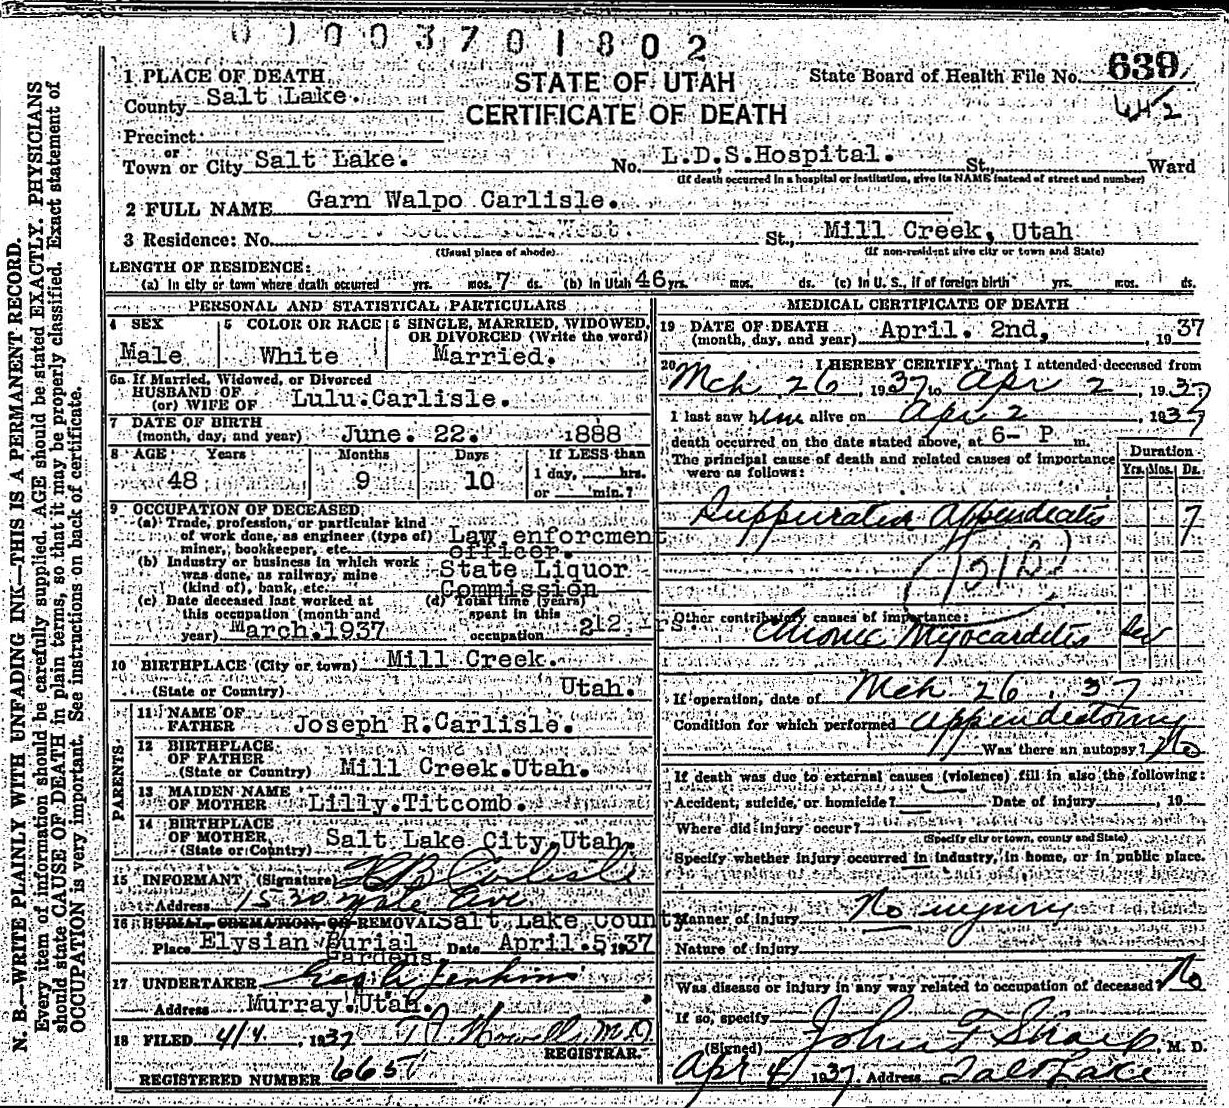 0 1 0 0 3 7 0 1 8 0 2
STATE OF UTAH
CERTIFICATE OF DEATH
State Board of Health File No. 639
1 PLACE OF DEATH
County Salt Lake.
Precinct
or
Town or City Salt Lake. No. L.D.S.Hospital. St., Ward
(If death occurred in a hospital or institution, give its NAME instead of street and number)
2 FULL NAME Garn Walpo Carlisle.
3 Residence: No. St., Mill Creek, Utah
(Usual place of abode) (If non-resident give city or town and State)
LENGTH OF RESIDENCE:
(a) In city or town where death occurred yrs. mos. 7 ds. (b) In Utah 46 yrs. mos. ds. (c) In U. S., if of foreign birth yrs. mos. ds.
PERSONAL AND STATISTICAL PARTICULARS
4 SEX
Male
5 COLOR OR RACE
White
6 SINGLE, MARRIED, WIDOWED, OR DIVORCED (Write the word)
Married.
6a If Married, Widowed, or Divorced
HUSBAND OF
(or) WIFE OF Lulu.Carlisle.
7 DATE OF BIRTH
(month, day, and year) June. 22. 1888
8 AGE Years Months Days If LESS than
48 9 10 1 day, hrs.
or min.?
9 OCCUPATION OF DECEASED
(a) Trade, profession, or particular kind
of work done, as engineer (type of)
miner, bookkeeper, etc. Law enforcment officer.
(b) Industry or business in which work
was done, as railway, mine
(kind of), bank, etc. State Liquor Commission
(c) Date deceased last worked at
this occupation (month and
year) March.1937
(d) Total time (years)
spent in this
occupation
10 BIRTHPLACE (City or town) Mill Creek.
(State or Country) Utah.
PARENTS
11 NAME OF
FATHER Joseph R.Carlisle.
12 BIRTHPLACE
OF FATHER
(State or Country) Mill Creek.Utah.
13 MAIDEN NAME
OF MOTHER Lilly.Titcomb.
14 BIRTHPLACE
OF MOTHER
(State or Country) Salt Lake City,Utah.
15 INFORMANT (Signature) Carlisle
Address 1530 Yale Ave
16 BURIAL, CREMATION, OR REMOVAL Salt Lake County
Place Elysian Burial Gardens Date April.5, 1937
17 UNDERTAKER Jenkins
Address Murray.Utah.
18 FILED 4/4, 1937 M.D.
REGISTRAR.
REGISTERED NUMBER
MEDICAL CERTIFICATE OF DEATH
19 DATE OF DEATH
(month, day, and year) April. 2nd, , 1937
20 I HEREBY CERTIFY, That I attended deceased from
Mch 26, 1937 to Apr 2, 1937
I last saw him alive on Apr 2, 1937
death occurred on the date stated above, at 6- P m.
The principal cause of death and related causes of importance
were as follows:
Duration
Yrs. Mos. Ds.
Suppurative Appendicitis 7
Other contributory causes of importance:
Chronic Myocarditis
If operation, date of Mch 26, 37
Condition for which performed appendectomy
Was there an autopsy? No
If death was due to external causes (violence) fill in also the following:
Accident, suicide, or homicide? Date of injury , 19
Where did injury occur?
(Specify city or town, county and State)
Specify whether injury occurred in industry, in home, or in public place.
Manner of injury No injury
Nature of injury
Was disease or injury in any way related to occupation of deceased? No
If so, specify
(Signed) John F Sharp, M. D.
Apr 4 1937 Address Salt Lake
N. B.—WRITE PLAINLY WITH UNFADING INK—THIS IS A PERMANENT RECORD.
Every item of information should be carefully supplied. AGE should be stated EXACTLY. PHYSICIANS
should state CAUSE OF DEATH in plain terms, so that it may be properly classified. Exact statement of
OCCUPATION is very important. See instructions on back of certificate.